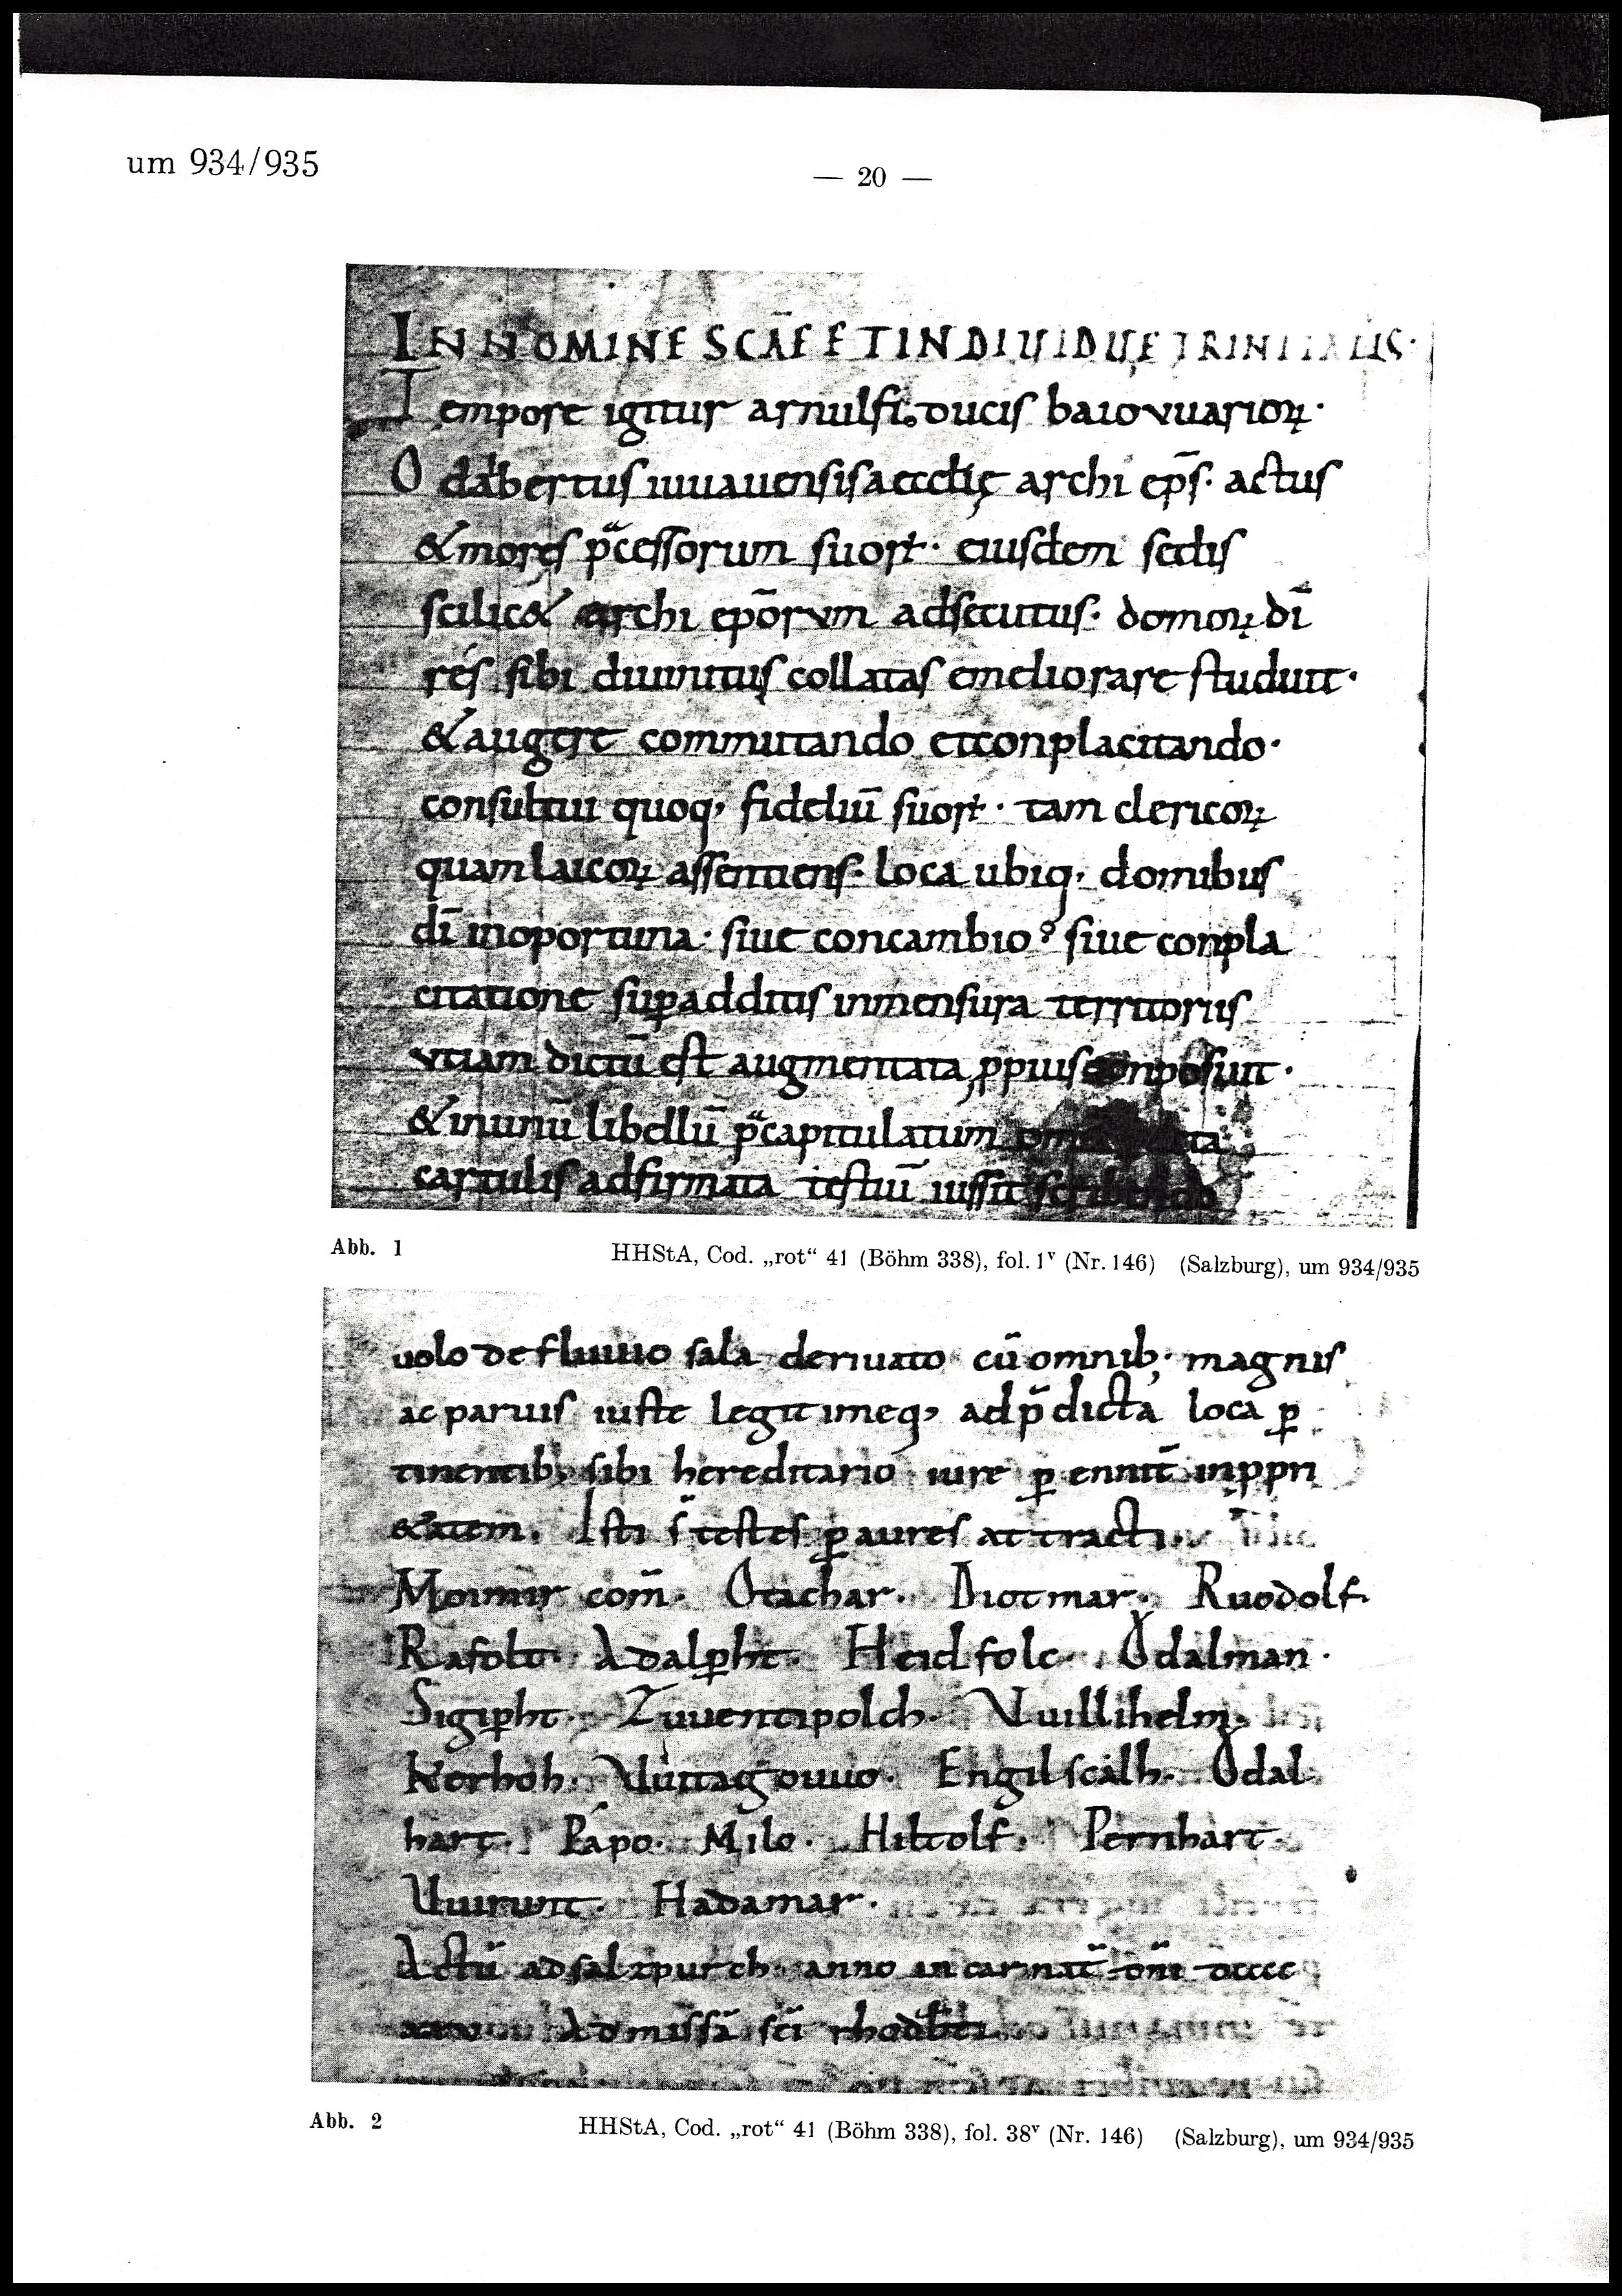 um 934/935
— 20 —
IN NOMINE SCĀE ET INDIUIDUE TRINITATIS·
Tempore igitur arnulfi ducis baiovuarioꝝ·
Odalbertus iuuauensis aecclię archi ep̄s· actus
& mores p̄cessorum suoꝝ· eiusdem sedis
scilic& archi ep̄orvm adsecutus· domoꝝ dī
res sibi diuinitus collatas emeliorare studuit·
& augere commutando et conplacitando·
consultui quoq; fideliū suoꝝ· tam clericoꝝ
quam laicoꝝ assentiens· loca ubiq· domibus
dī inoportuna· siue concambio siue conpla
citatione suꝑadditis inmensura territoriis
vtiam dictū est augmentata ꝓpius conposuit·
& inunū libellū p̄capitulatum
cartulis adfirmata testiū iussit scribendo
uolo de fluuio sala deriuato cū omnib; magnis
ac paruis iuste legitimeq; ad p̄dicta loca ꝑ
tinentib; sibi hereditario iure ꝑ ennit̄ in ꝓpri
&atem. Isti s̄ testes ꝑ aures attracti.
Moimir com̄. Otachar. Diotmar. Ruodolf.
Rafolt. Adalꝑht. Heidfolc. Odalman.
Sigiꝑht. Zuuentipolch. Vuillihelm.
Kerhoh. Vuitagouuo. Engilscalh. Odal
hart. Papo. Milo. Hiltolf. Pernhart.
Uuirunt. Hadamar.
Actū ad salzpurch anno incarnat̄ dn̄i dcccc
xxxv Ad missā sc̄i rhodb̄ti
Abb. 1 HHStA, Cod. „rot“ 41 (Böhm 338), fol. 1ᵛ (Nr. 146) (Salzburg), um 934/935
Abb. 2 HHStA, Cod. „rot“ 41 (Böhm 338), fol. 38ᵛ (Nr. 146) (Salzburg), um 934/935